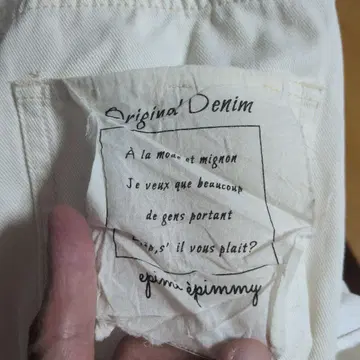 Original Denim
À la mode et mignon
Je veux que beaucoup
de gens portant
s' il vous plait?
epimmy èpimmy